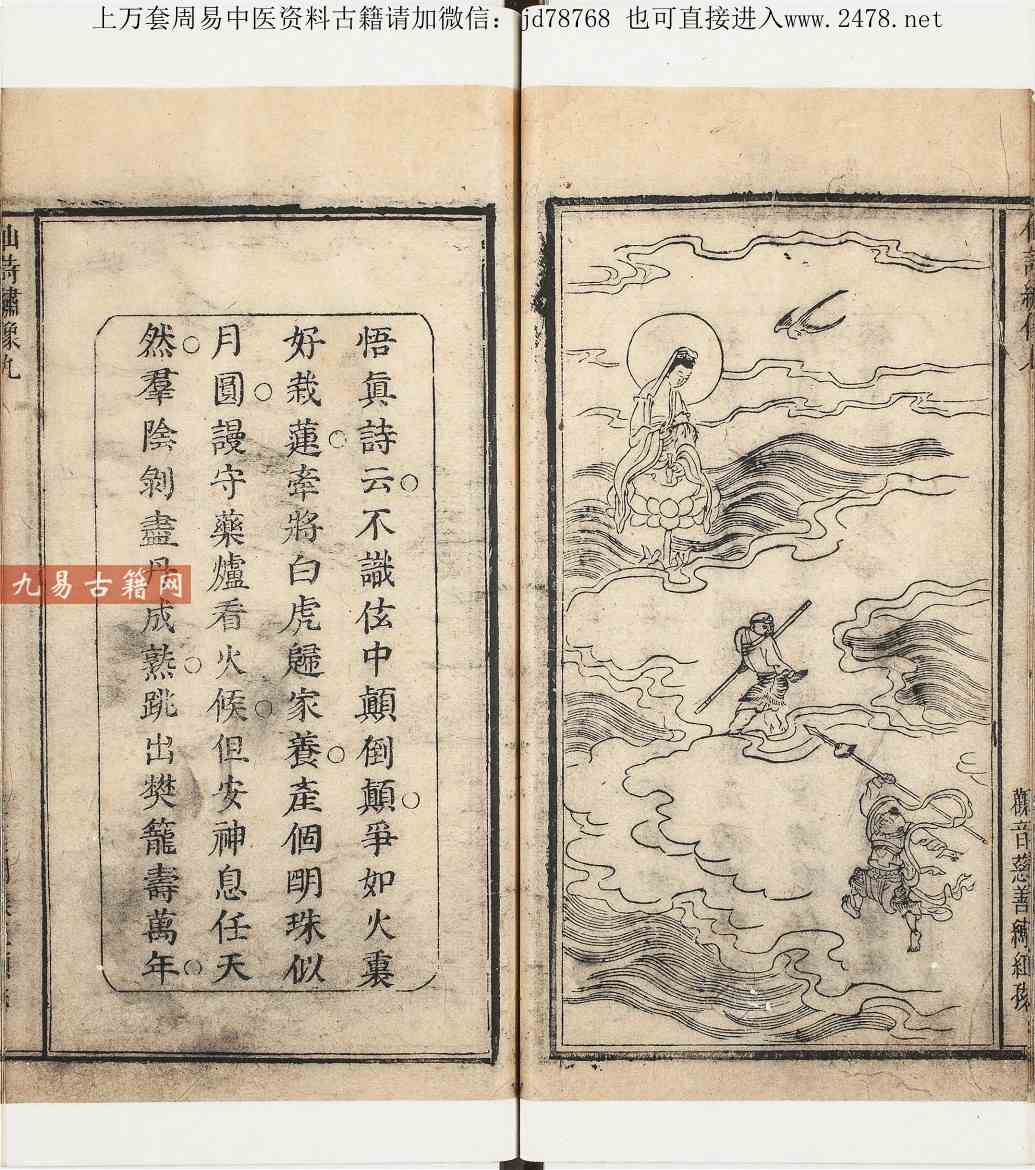 上万套周易中医资料古籍请加微信：jd78768 也可直接进入www.2478.net
觀音慈善縛紅孩
悟眞詩云不識仗中顚倒顚爭如火裏
好栽蓮牽將白虎歸家養產個明珠似
月圓謾守藥爐看火候但安神息任天
然羣陰剝盡丹成熟跳出樊籠壽萬年
仙詩繡像九
九易古籍网